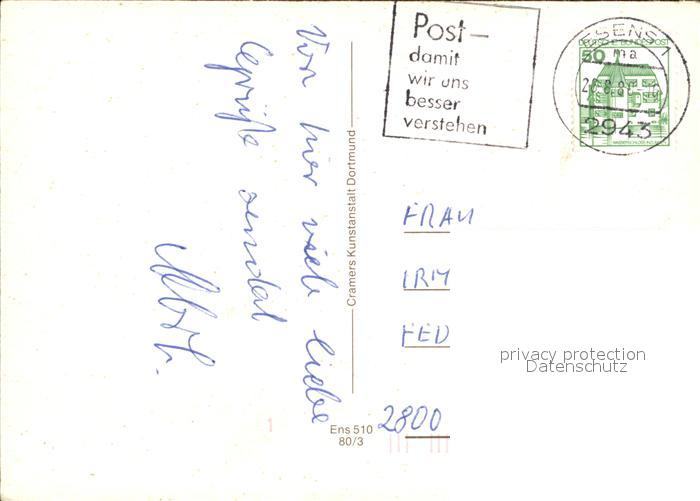 Post –
damit
wir uns
besser
verstehen
ESENS
ma
2943
DEUTSCHE BUNDESPOST
50
Von hier viele liebe
Grüße sendet
Cramers Kunstanstalt Dortmund
FRAU
IRM
FED
privacy protection
Datenschutz
2800
Ens 510
80/3
1